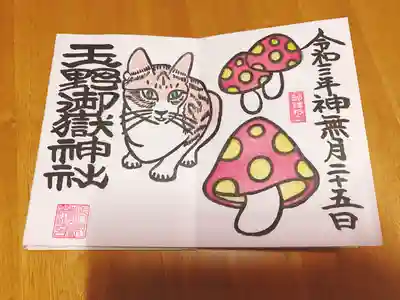 令和三年神無月二十五日
玉野御嶽神社